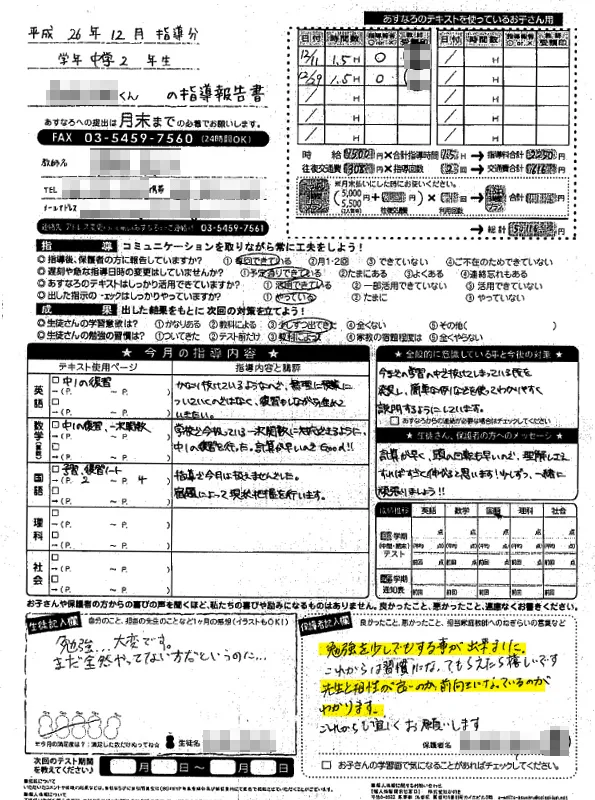 平成 26年 12月 指導分
学年 中学2 年生
くん の指導報告書
あすなろへの提出は月末までの必着でお願いします。
FAX 03-5459-7560 (24時間OK)
教師名
TEL 携帯
メールアドレス
03-5459-7561
あすなろのテキストを使っているお子さん用
日付 時間数
12/11 1.5H ○
12/29 1.5H ○
時 給 円×合計指導時間 H → 指導料合計 円
往復交通費 円×指導回数 回 → 交通費合計 円
※月末払いにした時にお使いください。
5,000
5,500
→ 総計 円
指 導 コミュニケーションを取りながら常に工夫をしよう!
◎指導後、保護者の方に報告していますか? ①毎回できている ②月1・2回 ③できていない ④ご不在のためできていない
◎遅刻や急な指導日時の変更はしていませんか? ①予定通りできている ②たまにある ③よくある ④連絡忘れもある
◎あすなろのテキストはしっかり活用できていますか? ①活用できている ②一部活用できていない ③活用できていない
◎出した指示のチェックはしっかりやっていますか? ①やっている ②たまに ③やっていない
成 果 出した結果をもとに次回の対策を立てよう!
◎生徒さんの学習意欲は? ①かなりある ②教科による ③少しずつ出てきた ④全くない ⑤その他( )
◎生徒さんの勉強の習慣は? ①ついてきた ②テスト前だけ ③教科によって ④家教の宿題程度は ⑤全くやらない
★ 今月の指導内容 ★
テキスト使用ページ 指導内容と講評
英語 中1の復習
かなり抜けているようなので、無理に授業に
ついていくのではなく、復習をしながら進めて
いきたい。
数学 中1の復習、一次関数
学校で今扱っている一次関数に対応できるように、
中1の復習を行った。計算が早いのでGood!!
国語 予習、復習ノート
2 ~ 4
指導は今月は扱えませんでした。
宿題によって現状把握を行います。
理科
社会
★ 全般的に意識している事と今後の対策 ★
今までの学習の中で抜けてしまっている所を
発見し、簡単な例などを使ってわかりやすく
説明するようにしています。
□ あすなろからの連絡が必要な場合はチェックしてください
★ 生徒さん、保護者の方へのメッセージ ★
計算が早く、頭の回転も早いので、理解しさえ
すればすごく伸びると思います!少しずつ、一緒に
頑張りましょう!!
成績推移 英語 数学 国語 理科 社会
学期
(中間・期末)
テスト
学期
通知表
お子さんや保護者の方からの喜びの声を聞くほど、私たちの喜びや励みになるものはありません。良かったこと、悪かったこと、遠慮なくお書きください。
生徒記入欄 自分のこと、担当の先生のことなど1ヶ月の感想(イラストもOK!)
勉強…大変です。
まだ全然やってない方だというのに…
※今月の満足度は?:満足した数だけぬってね☆
生徒名
保護者記入欄 良かったこと、悪かったこと、担当家庭教師へのねぎらいの言葉など
勉強を少しでもする事が出来ました。
これからは習慣になってもらえたら嬉しいです
先生と相性が合うのか、前向きになっているのが
わかります。
これからも宜しくお願いします
保護者名
□ お子さんの学習面で気になることがあればチェックしてください。
次回のテスト期間
を教えてください♪
月 日 ~ 月 日